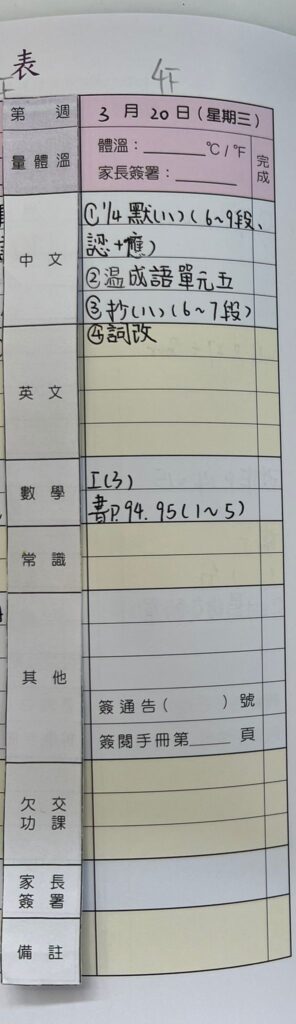 表
4F
第 週
3 月 20 日(星期三)
量體溫
體溫:______℃/℉
家長簽署:______
完成
中 文
①1/4默(八)(6~9段、
認+應)
②温成語單元五
③抄(八)(6~7段)
④詞改
英 文
數 學
I(3)
書P.94.95(1~5)
常 識
其 他
簽通告( )號
簽閱手冊第____頁
欠 交
功 課
家 長
簽 署
備 註